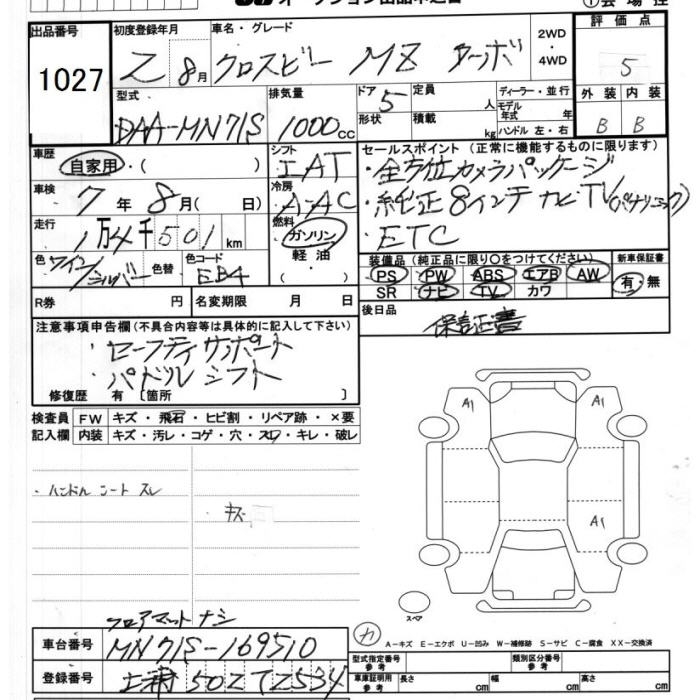 出品番号 初度登録年月 車名・グレード 2WD ・ 4WD 評価点
1027 乙 8月 クロスビー MZ ターボ 5
型式 排気量 ドア 定員 人 ディーラー・並行 外装 内装
DAA-MN71S 1000cc 5 形状 積載 kg モデル年式 年 ハンドル 左・右 B B
車歴 自家用・( ) シフト セールスポイント(正常に機能するものに限ります)
IAT ・全方位カメラパッケージ
車検 7年 8月( 日) 冷房 AAC ・純正8インチナビTV(パナソニック)
走行 1万4千501km 燃料 ガソリン ・ETC
色 ワイン/シルバー 色替 色コード EB4 軽油 ( ) 装備品(純正品に限り〇をつけてください) 新車保証書
PS PW ABS エアB AW 有・無
SR ナビ TV カワ
R券 円 名変期限 月 日 後日品
保証証書
注意事項申告欄(不具合内容等は具体的に記入して下さい)
・セーフティサポート
・パドルシフト
修復歴 有〔箇所 〕
検査員 FW キズ・飛石・ヒビ割・リペア跡・×要
記入欄 内装 キズ・汚レ・コゲ・穴・スレ・キレ・破レ
A1 A1
・ハンドル シート スレ
キズ
A1
スペア
フロアマットナシ
カ A-キズ E-エクボ U-凹み W-補修跡 S-サビ C-腐食 XX-交換済
車台番号 MN71S-169510
型式指定番号 参考 類別区分番号 参考
登録番号 土浦 502 Z2534
車庫証明用 参考 長さ cm 幅 cm 高さ cm